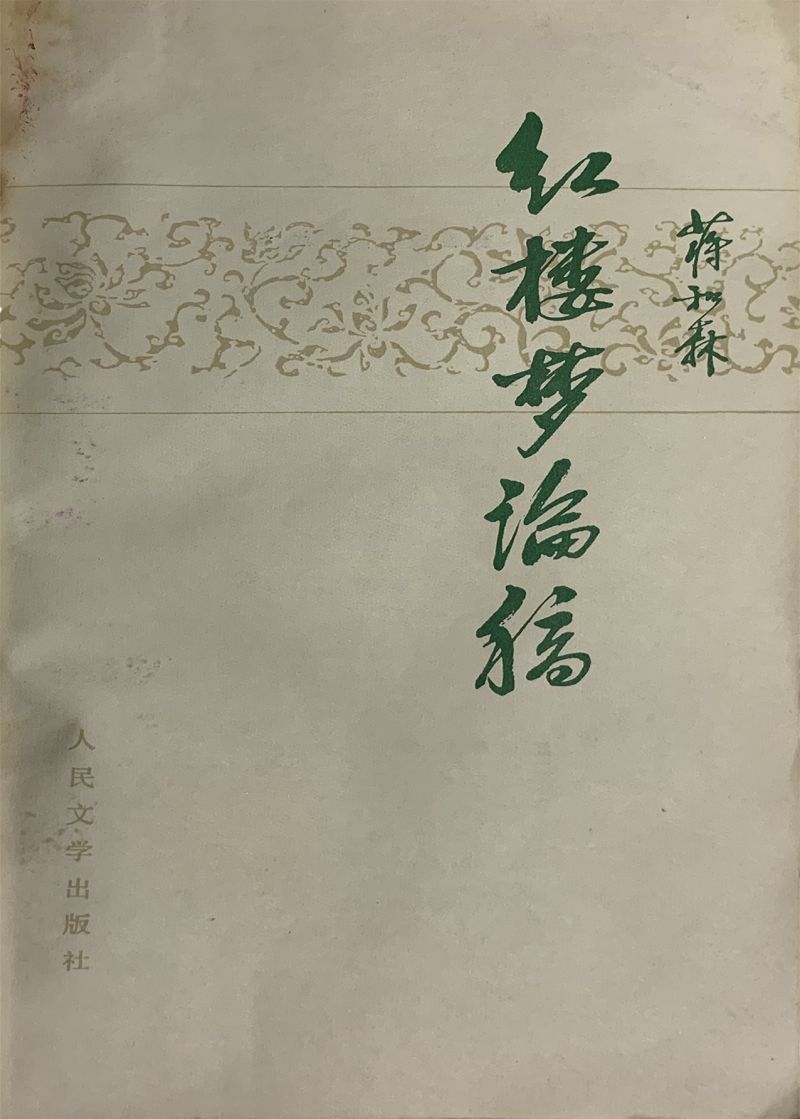 蒋和森
红楼梦论稿
人民文学出版社